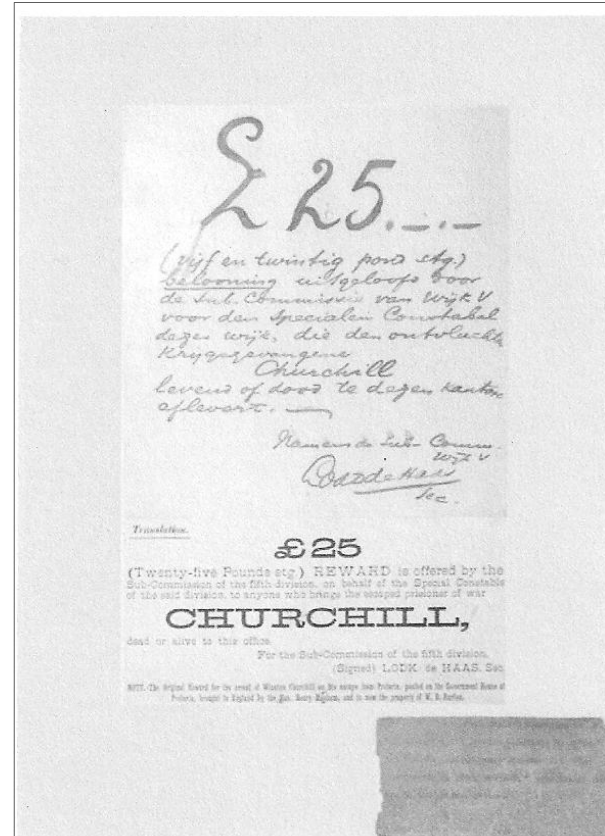 £ 25.-.-
(Vijf en twintig pond stg.)
belooning uitgeloofd door
de Sub. Commissie van Wijk V
voor den Specialen Constabel
dezer wijk, die den ontvluchte
Krygsgevangene
Churchill
levend of dood te dezen kantore
aflevert.
Namens de Sub-Comm.
Wijk V
Lodk de Haas
Sec.
Translation.
£25
(Twenty-five Pounds stg.) REWARD is offered by the
Sub-Commission of the fifth division, on behalf of the Special Constable
of the said division, to anyone who brings the escaped prisoner of war
CHURCHILL,
dead or alive to this office.
For the Sub-Commission of the fifth division,
(Signed) LODK. de HAAS, Sec.
NOTE.-The Original Reward for the arrest of Winston Churchill on his escape from Pretoria, posted on the Government House at
Pretoria, brought to England by the Hon. Henry Masham, and is now the property of W. R. Burton.